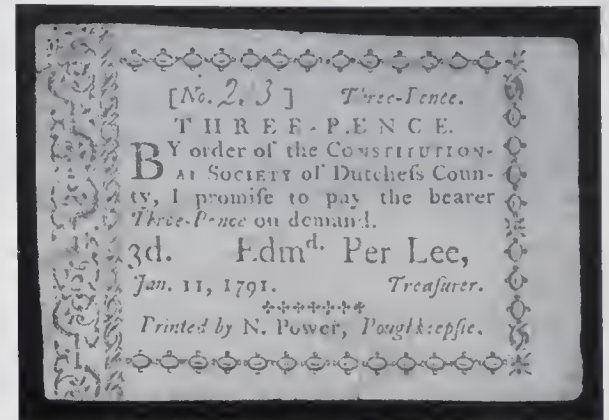 [No. 2.3] Three-Pence.
THREE-PENCE.
BY order of the CONSTITUTION-
AL SOCIETY of Dutcheſs Coun-
ty, I promiſe to pay the bearer
Three-Pence on demand.
3d. Edmd. Per Lee,
Jan. 11, 1791. Treaſurer.
Printed by N. Power, Poughkeepſie.